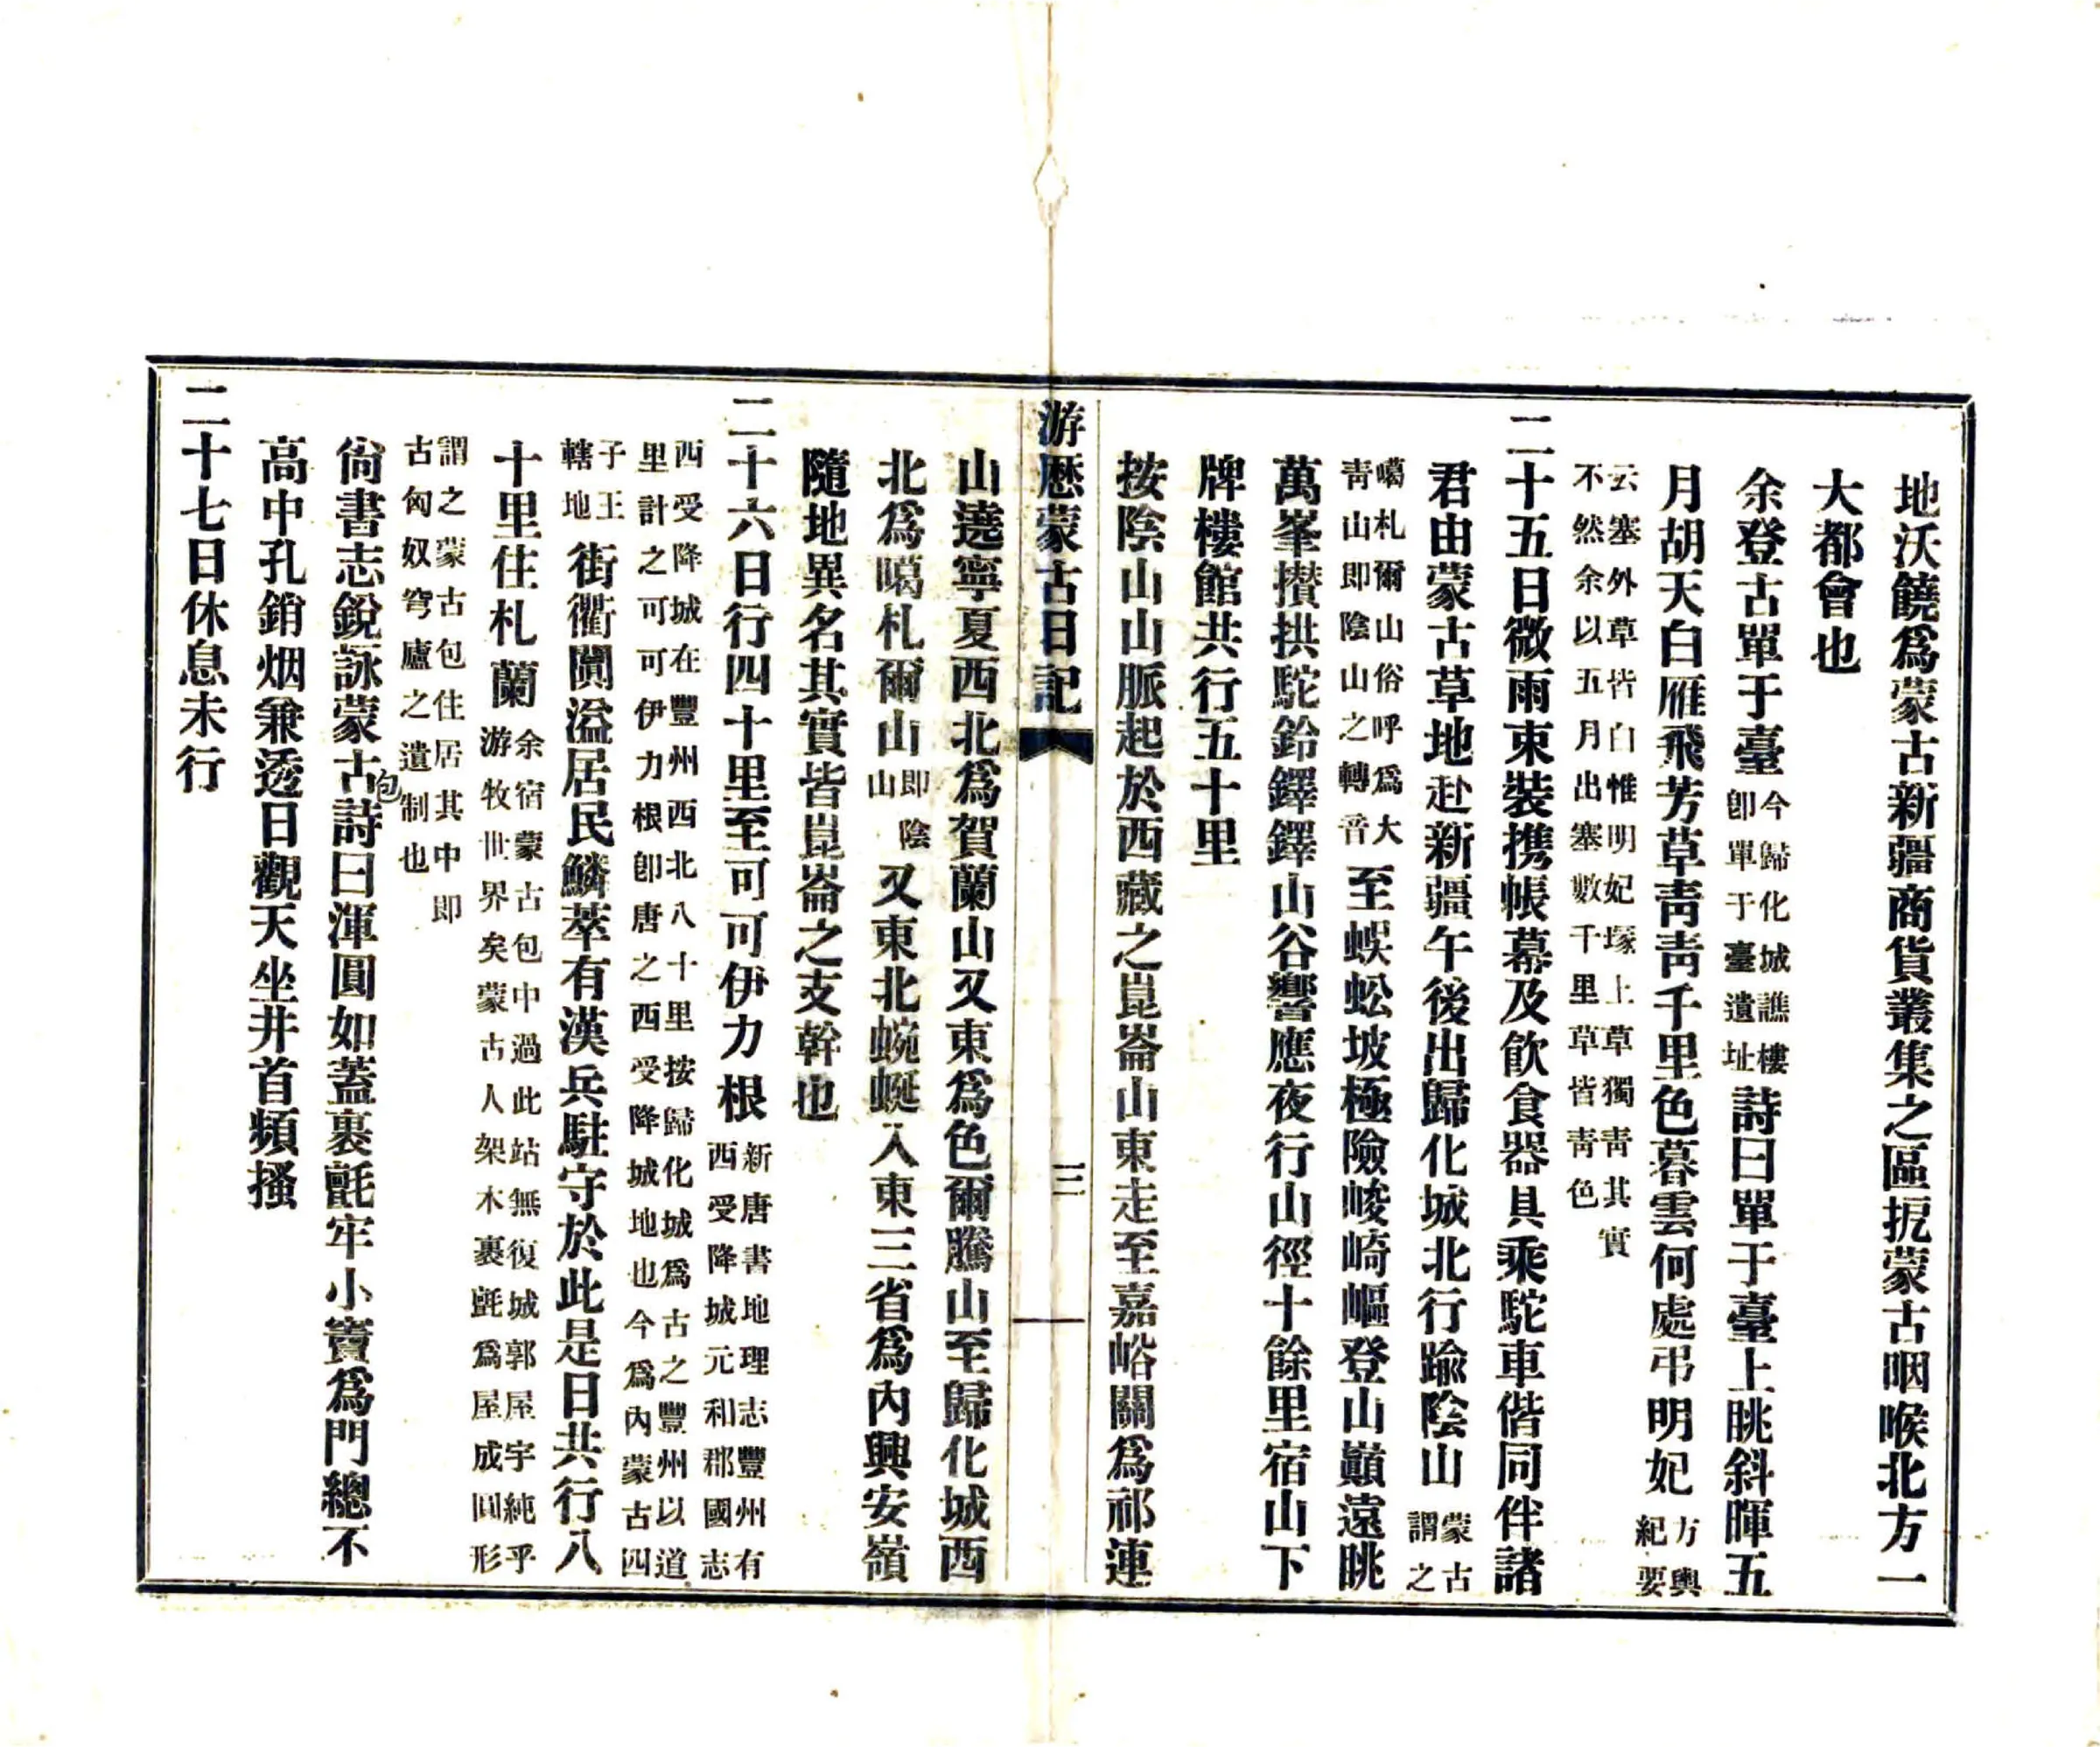 地沃饒爲蒙古新疆商貨叢集之區扼蒙古咽喉北方一
大都會也
余登古單于臺
今歸化城譙樓
卽單于臺遺址
詩曰單于臺上眺斜暉五
月胡天白雁飛芳草靑靑千里色暮雲何處弔明妃
方輿
紀要
云塞外草皆白惟明妃塚上草獨靑其實
不然余以五月出塞數千里草皆靑色
二十五日微雨束裝携帳幕及飮食器具乘駝車偕同伴諸
君由蒙古草地赴新疆午後出歸化城北行踰陰山
蒙古
謂之
噶札爾山俗呼爲大
靑山即陰山之轉音
至蜈蚣坡極險峻崎嶇登山巓遠眺
萬峯攢拱駝鈴鐸鐸山谷響應夜行山徑十餘里宿山下
牌樓館共行五十里
按陰山山脈起於西藏之崑崙山東走至嘉峪關爲祁連
游歷蒙古日記
三
山遶寧夏西北爲賀蘭山又東爲色爾騰山至歸化城西
北爲噶札爾山
即陰
山
又東北蜿蜒入東三省爲內興安嶺
隨地異名其實皆崑崙之支幹也
二十六日行四十里至可可伊力根
新唐書地理志豐州有
西受降城元和郡國志
西受降城在豐州西北八十里按歸化城爲古之豐州以道
里計之可可伊力根卽唐之西受降城地也今爲內蒙古四
子王
轄地
街衢闐溢居民鱗萃有漢兵駐守於此是日共行八
十里住札蘭
余宿蒙古包中過此站無復城郭屋宇純乎
游牧世界矣蒙古人架木裹氈爲屋成圓形
謂之蒙古包住居其中即
古匈奴穹廬之遺制也
尙書志銳詠蒙古包詩曰渾圓如蓋裹氈牢小竇爲門總不
高中孔銷烟兼透日觀天坐井首頻搔
二十七日休息未行